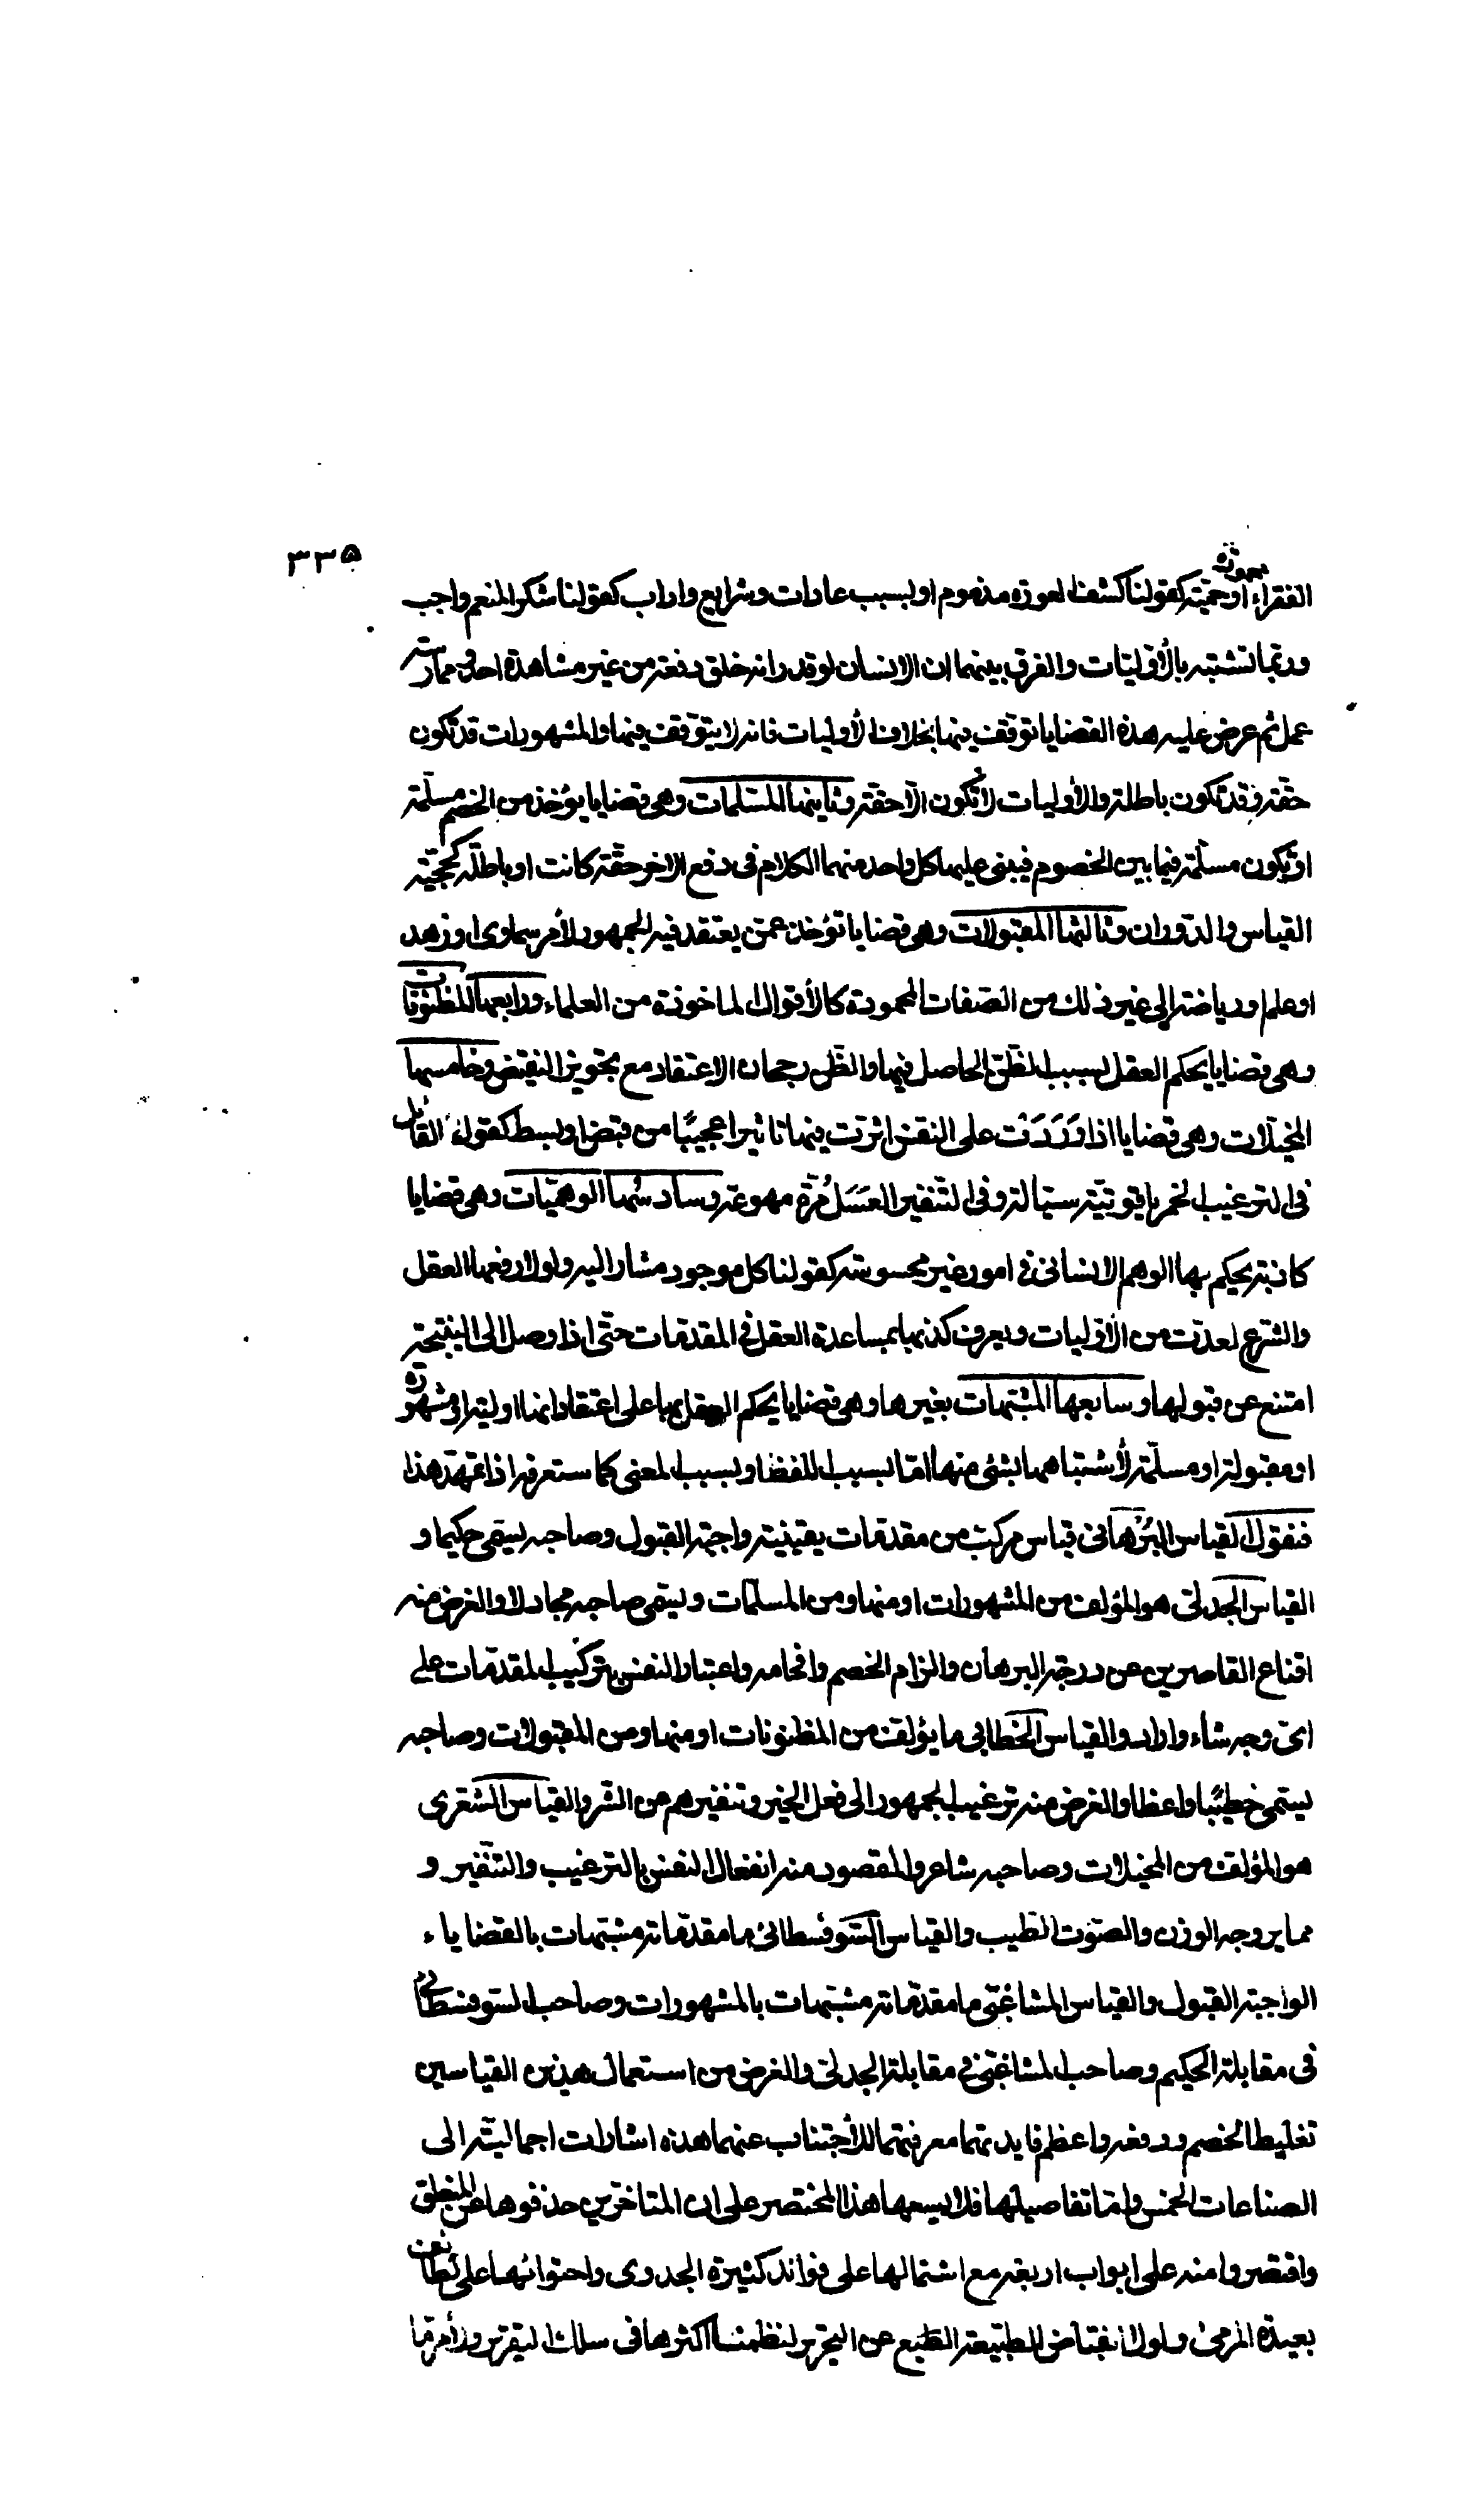 ٣٣٥
الفقراء محمودة او حمية كقولنا كشف العورة مذموم او بسبب عادات وشرايع واداب كقولنا شكر المنعم واجب
وربّما تشتبه بالأوّليّات والفرق بينهما ان الانسان لو قدر انه خلق دفعة من غير مشاهدة احد وممارسة
عمل ثم عرض عليه هذه القضايا توقّف فيها بخلاف الأوليات فانه لا يتوقف فيها والمشهورات قد تكون
حقّة وقد تكون باطلة والأوليات لا تكون الّا حقّة وثانيها المسلّمات وهى قضايا يؤخذ من الخصم مسلّمة
او تكون مسلّمة فيما بين الخصوم فيبنى عليها كل واحد منهما الكلام فى دفع الاخر حقّة كانت او باطلة كحجّية
القياس والدّوران وثالثها المقبولات وهى قضايا تؤخذ عمّن يعتقد فيه الجمهور لأمر سماوى او زهد
او علم او رياضة الى غير ذلك من الصّفات المحمودة كالأقوال الماخوذة من العلماء ورابعها المظنونات
وهى قضايا يحكم العقل بسبب الظّنّ الحاصل فيها والظّن رجحان الاعتقاد مع تجويز النقيض وخامسها
المخيّلات وهى قضايا اذا وَرَدَت على النفس اثرت فيها تاثيرا عجيبًا من قبض او بسط كقول القائل
فى الترغيب الخمر ياقوتيّة سيّالة وفى التّنفير العَسَل مُرّة مهوعة وسادسُها الوهميّات وهى قضايا
كاذبة يحكم بها الوهم الانسانى فى امور غير محسوسة كقولنا كل موجود مشار اليه ولولا دفعها العقل
والشرع لعدّت من الأوّليات ويعرف كذبها بمساعدة العقل فى المقدمات حتى اذا وصل الى النتيجة
امتنع عن قبولها وسابعها المشتبهات بغيرها وهى قضايا يحكم العقل بها على اعتقاد انها اوليّة او مشهورة
او مقبولة او مسلّمة لأشتباهها بشئ منها امّا بسبب اللفظ او بسبب المعنى كما ستعرفه اذا تمهّد هذا
فنقول القياس البُرْهانى قياس مركّب من مقدمات يقينية واجبة القبول وصاحبه يسمى حكيما و
القياس الجدلىّ هو المؤلف من المشهورات او منها ومن المسلمات ويسمّى صاحبه مجادلا والغرض منه
اقناع القاصرين عن درجة البرهان والزام الخصم وافحامه واعتياد النفس بتركيب المقدمات على
اىّ وجه شاء واراد والقياس الخطابى ما يؤلف من المظنونات او منها ومن المقبولات وصاحبه
يسمّى خطيبًا واعظا والغرض منه ترغيب الجمهور الى فعل الخير وتنفيرهم عن الشر والقياس الشّعرى
هو المؤلف من المخيلات وصاحبه شاعر والمقصود منه انفعال النفس بالترغيب والتنفير و
مما يروجه الوزن والصّوت الطّيب والقياس السّوفسطائى ما مقدّماته مشتبهات بالقضايا
الواجبة القبول والقياس المشاغبى ما مقدّماته مشتبهات بالمشهورات وصاحب السّوفسطائى
فى مقابلة الحكيم وصاحب المشاغبى فى مقابلة الجدلىّ والغرض من استعمال هذين القياسين
تغليط الخصم ودفعه واعظم فايدتهما معرفتهما للأجتناب عنهما هذه اشارات اجماليّة الى
الصناعات الخمس وامّا تفاصيلها فلا يسعها هذا المختصر على ان المتاخّرين حذفوها عن المنطق
واقتصروا منه على ابواب اربعة مع اشتمالها على فوائد كثيرة الجدوى واحتوائها على لطائف
بعيدة المرمى ولولا انقباض الطبيعة عن التحرير لنظمنا اكثرها فى سلك التقرير ولأمر ما